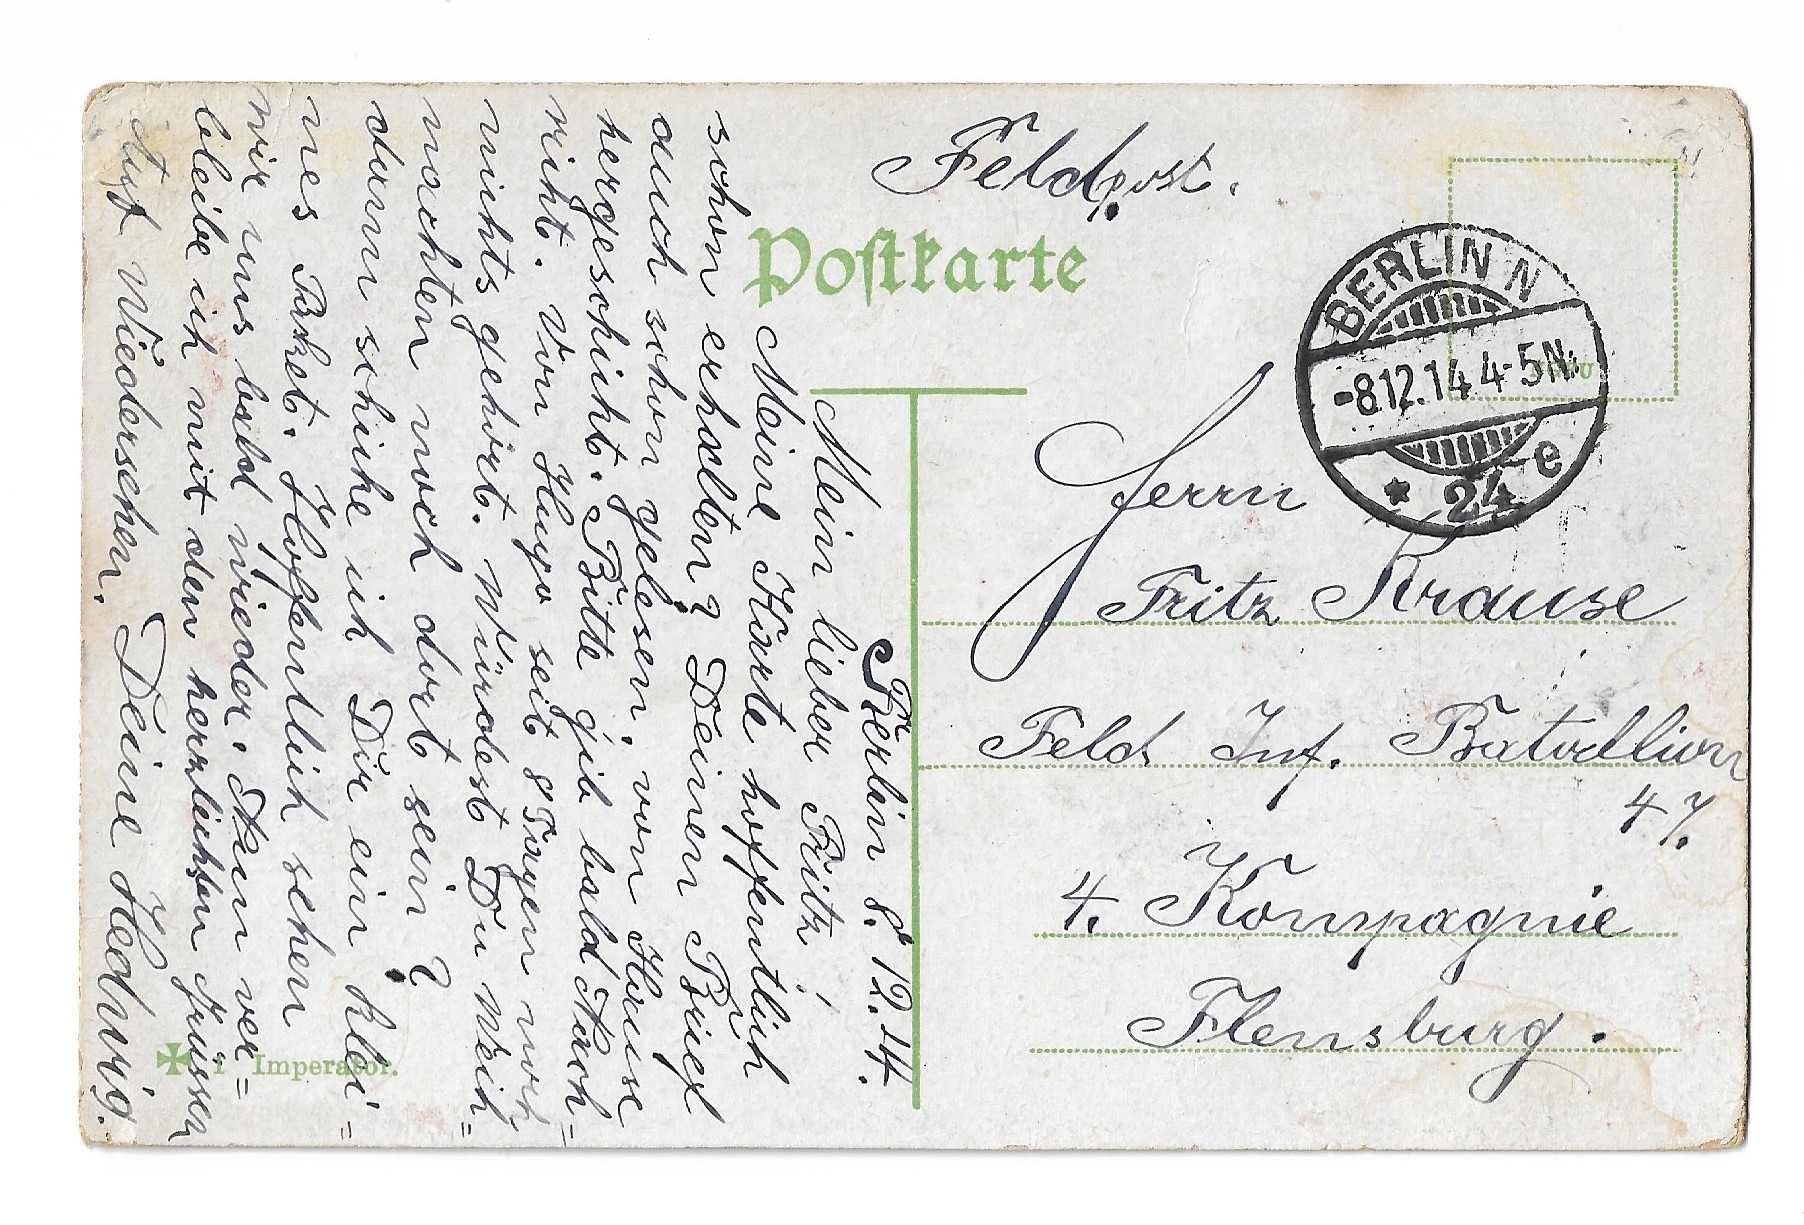 Feldpost.
Postkarte
BERLIN N
-8.12.14 4-5N.
* 24 e
Herrn
Fritz Krause
Feld Inf. Batallion
47.
4. Kompagnie
Flensburg.
Berlin 8.12.14.
Mein lieber Fritz!
Meine Karte hoffentlich
schon erhalten? Deinen Brief
auch schon gelesen, von Hause
hergeschickt. Bitte gib bald Nach=
richt. Von Hugo seit 8 Tagen noch
nichts gehört. Würdest Du Weih=
nachten noch dort sein?
dann schicke ich Dir ein klei=
nes Paket. Hoffentlich sehen
wir uns bald wieder. Nun ver=
bleibe ich mit den herzlichsten Grüssen
Auf Wiedersehen. Deine Hedwig.
Imperator.